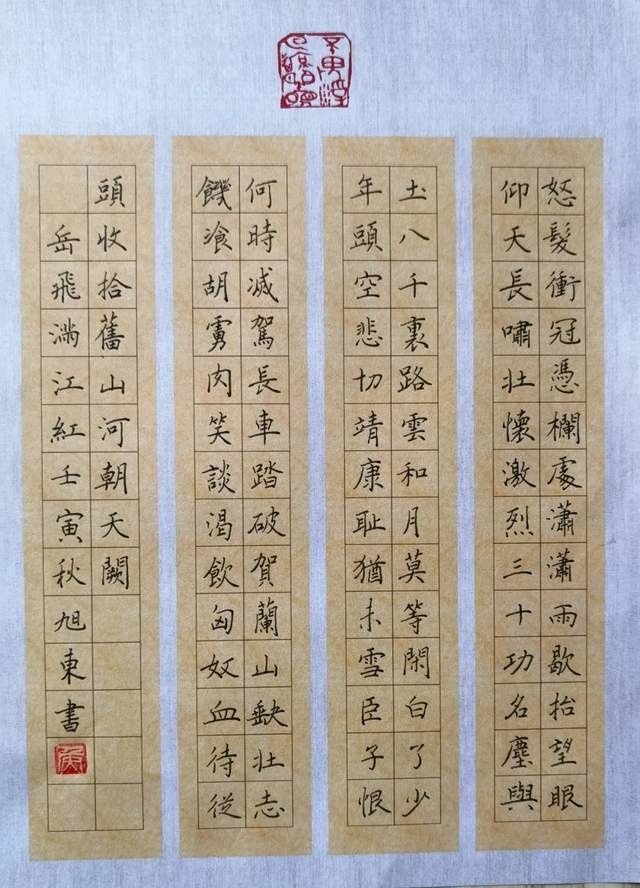 怒髮衝冠憑欄處瀟瀟雨歇抬望眼
仰天長嘯壯懷激烈三十功名塵與
土八千裏路雲和月莫等閑白了少
年頭空悲切靖康耻猶未雪臣子恨
何時滅駕長車踏破賀蘭山缺壯志
饑湌胡虜肉笑談渴飲匈奴血待從
頭收拾舊山河朝天闕
岳飛滿江紅壬寅秋旭東書